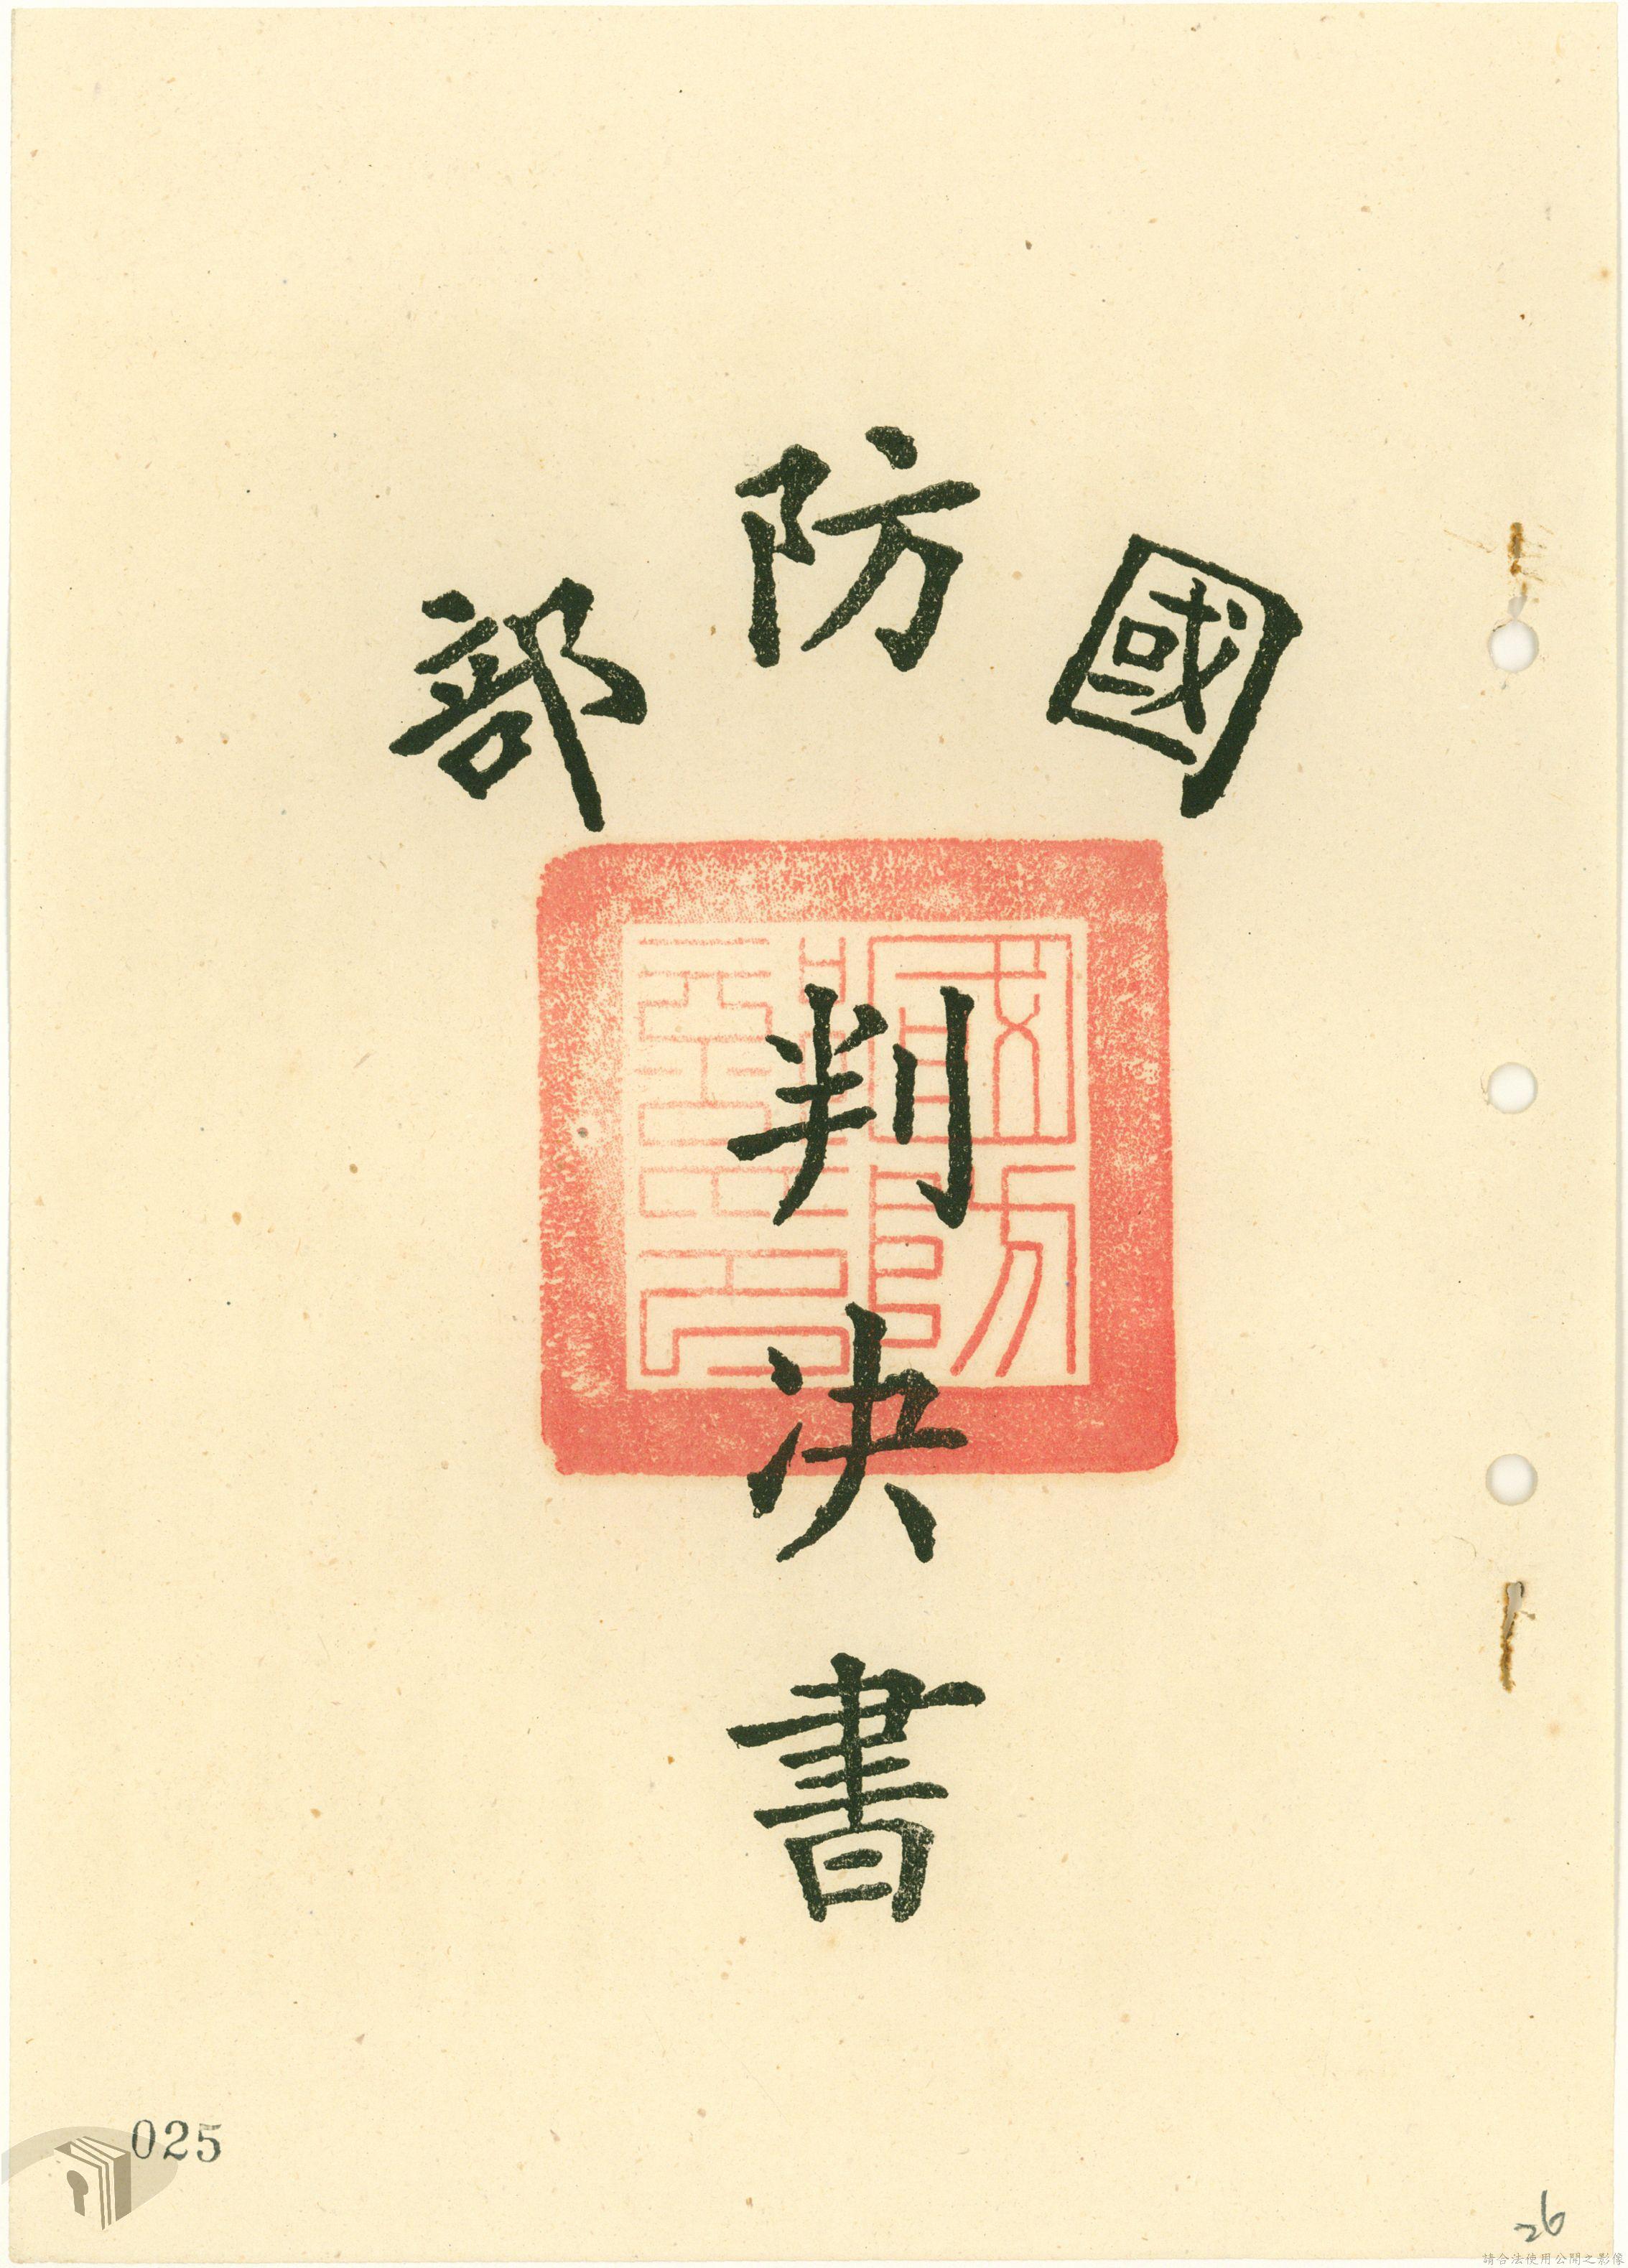 國防部
判決書
025
26
請合法使用公開之影像